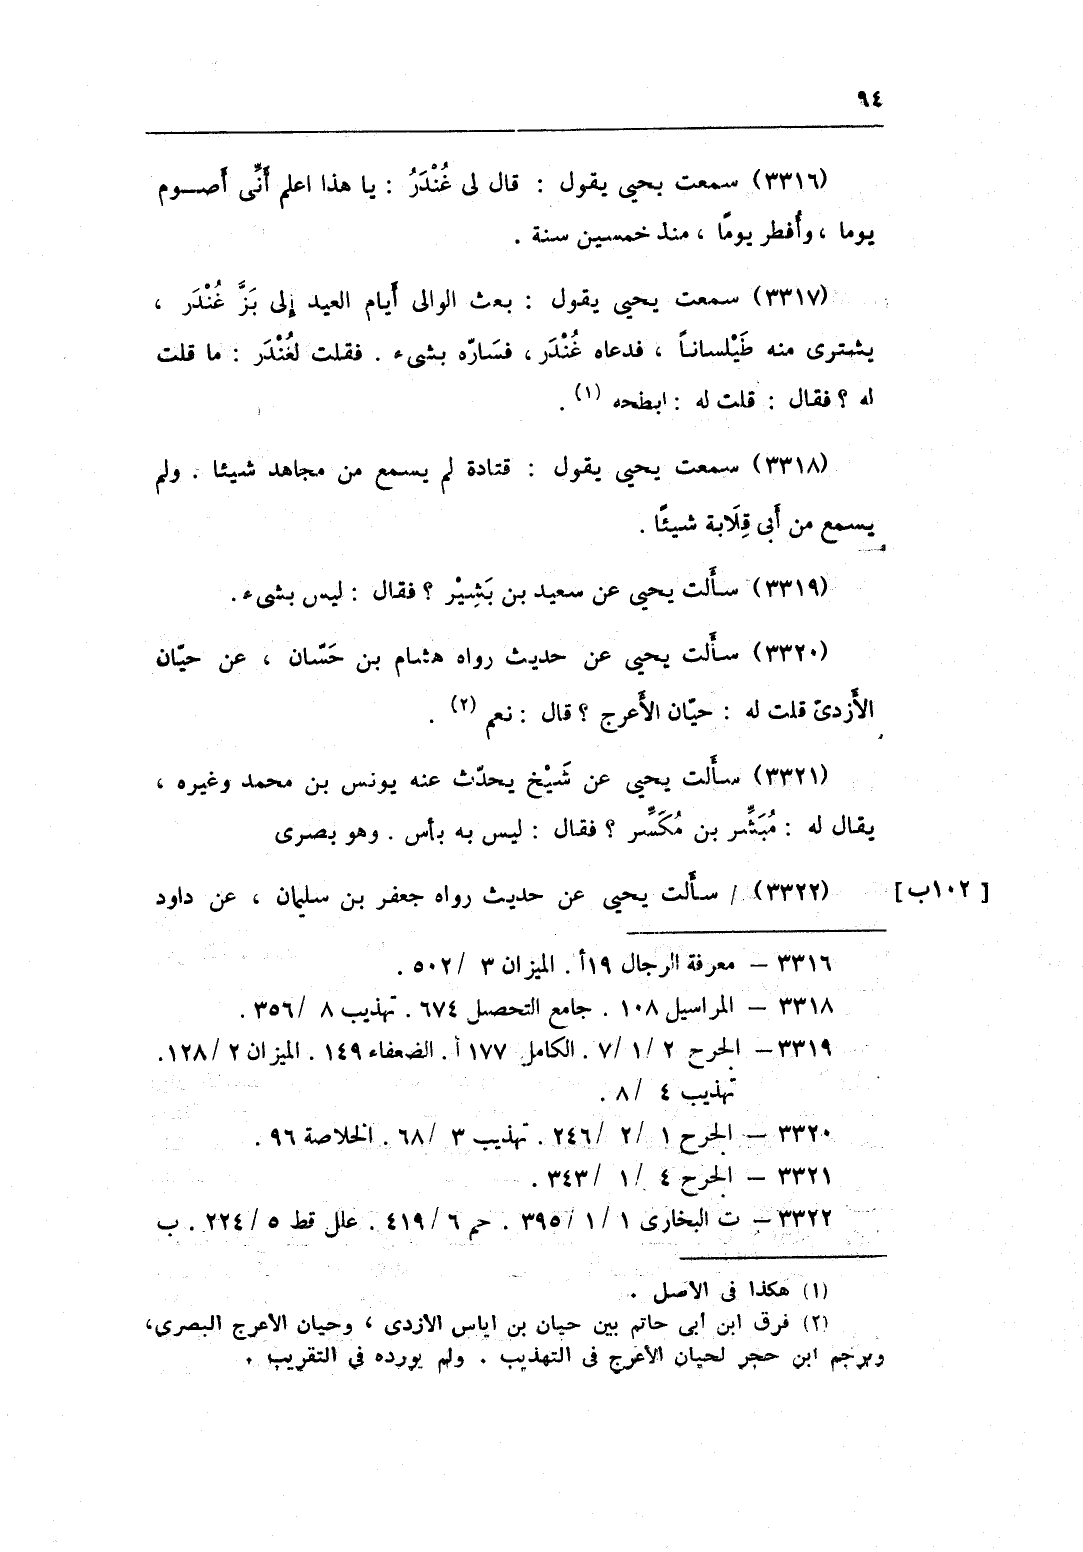 ٩٤
(٣٣١٦) سمعت يحيى يقول : قال لى غُنْدَرُ : يا هذا اعلم أَنِّى أَصـــوم
يوما ، وأُفطر يومًا ، منذ خمسين سنة .
(٣٣١٧) سمعت يحيى يقول : بعث الوالى أَيام العيد إلى بَزَّ غُنْدَر ،
يشترى منه طَيْلساناً ، فدعاه غُنْدَر ، فسَارّه بشىء . فقلت لغُنْدَر : ما قلت
له ؟ فقال : قلت له : ابطحه (١) .
(٣٣١٨) سمعت يحيى يقول : قتادة لم يسمع من مجاهد شيئا . ولم
يسمع من أَبى قِلَابة شيئًا .
(٣٣١٩) سأَلت يحيى عن سعيد بن بَشِيْر ؟ فقال : ليس بشىء .
(٣٣٢٠) سأَلت يحيى عن حديث رواه هشام بن حَسّان ، عن حيّان
الأَزدىّ قلت له : حيّان الأَعرج ؟ قال : نعم (٢) .
(٣٣٢١) سأَلت يحيى عن شَيْخ يحدّث عنه يونس بن محمد وغيره ،
يقال له : مُبَشِّر بن مُكَسِّر ؟ فقال : ليس به بأس . وهو بصرى
[ ١٠٢ب ] (٣٣٢٢) / سأَلت يحيى عن حديث رواه جعفر بن سليمان ، عن داود
٣٣١٦ – معرفة الرجال ١٩أ . الميزان ٣ / ٥٠٢ .
٣٣١٨ – المراسيل ١٠٨ . جامع التحصيل ٦٧٤ . تهذيب ٨ / ٣٥٦ .
٣٣١٩ – الجرح ٢ / ١ / ٧ . الكامل ١٧٧ أ . الضعفاء ١٤٩ . الميزان ٢ / ١٢٨ .
تهذيب ٤ / ٨ .
٣٣٢٠ – الجرح ١ / ٢ / ٢٤٦ . تهذيب ٣ / ٦٨ . الخلاصة ٩٦ .
٣٣٢١ – الجرح ٤ / ١ / ٣٤٣ .
٣٣٢٢ – ت البخارى ١ / ١ / ٣٩٥ . حم ٦ / ٤١٩ . علل قط ٥ / ٢٢٤ . ب
(١) هكذا فى الاصل .
(٢) فرق ابن أبى حاتم بين حيان بن اياس الازدى ، وحيان الأعرج البصرى،
وترجم ابن حجر لحيان الأعرج فى التهذيب . ولم يورده في التقريب .